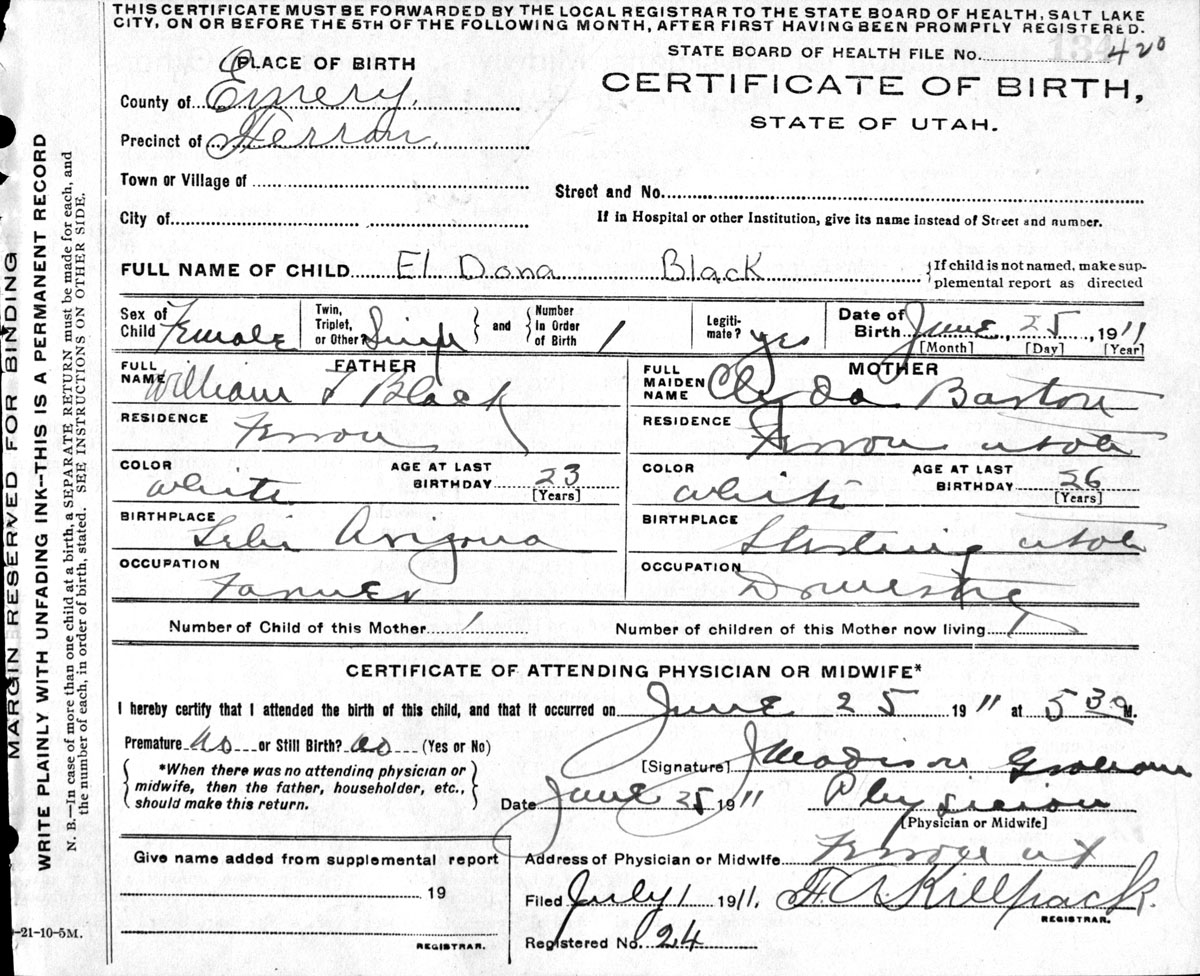 THIS CERTIFICATE MUST BE FORWARDED BY THE LOCAL REGISTRAR TO THE STATE BOARD OF HEALTH, SALT LAKE
CITY, ON OR BEFORE THE 5TH OF THE FOLLOWING MONTH, AFTER FIRST HAVING BEEN PROMPTLY REGISTERED.
STATE BOARD OF HEALTH FILE No. 420
PLACE OF BIRTH
CERTIFICATE OF BIRTH,
STATE OF UTAH.
County of Emery.
Precinct of Ferron.
Town or Village of
Street and No.
City of
If in Hospital or other Institution, give its name instead of Street and number.
FULL NAME OF CHILD El Dona Black
If child is not named, make sup-
plemental report as directed
Sex of Child Female
Twin, Triplet, or Other? Singl
and Number In Order of Birth 1
Legiti-mate? yes
Date of Birth June 25, 1911
[Month] [Day] [Year]
FATHER
FULL NAME William Black
RESIDENCE Ferron
COLOR White
AGE AT LAST BIRTHDAY 23
[Years]
BIRTHPLACE Arizona
OCCUPATION Farmer
MOTHER
FULL MAIDEN NAME Clyda Barton
RESIDENCE Ferron Utah
COLOR White
AGE AT LAST BIRTHDAY 26
[Years]
BIRTHPLACE Sterling Utah
OCCUPATION Domestic
Number of Child of this Mother 1
Number of children of this Mother now living 1
CERTIFICATE OF ATTENDING PHYSICIAN OR MIDWIFE*
I hereby certify that I attended the birth of this child, and that it occurred on June 25 1911 at 5 30 M.
Premature no or Still Birth? no (Yes or No)
*When there was no attending physician or
midwife, then the father, householder, etc.,
should make this return.
[Signature] J Madison Graham
Date June 25 1911 Physician
[Physician or Midwife]
Give name added from supplemental report
19
REGISTRAR.
Address of Physician or Midwife Ferron Ut
Filed July 1 1911. F A Killpack.
REGISTRAR.
Registered No. 24
MARGIN RESERVED FOR BINDING
WRITE PLAINLY WITH UNFADING INK--THIS IS A PERMANENT RECORD
N. B.—In case of more than one child at a birth, a SEPARATE RETURN must be made for each, and
the number of each, in order of birth, stated. SEE INSTRUCTIONS ON OTHER SIDE.
-21-10-5M.